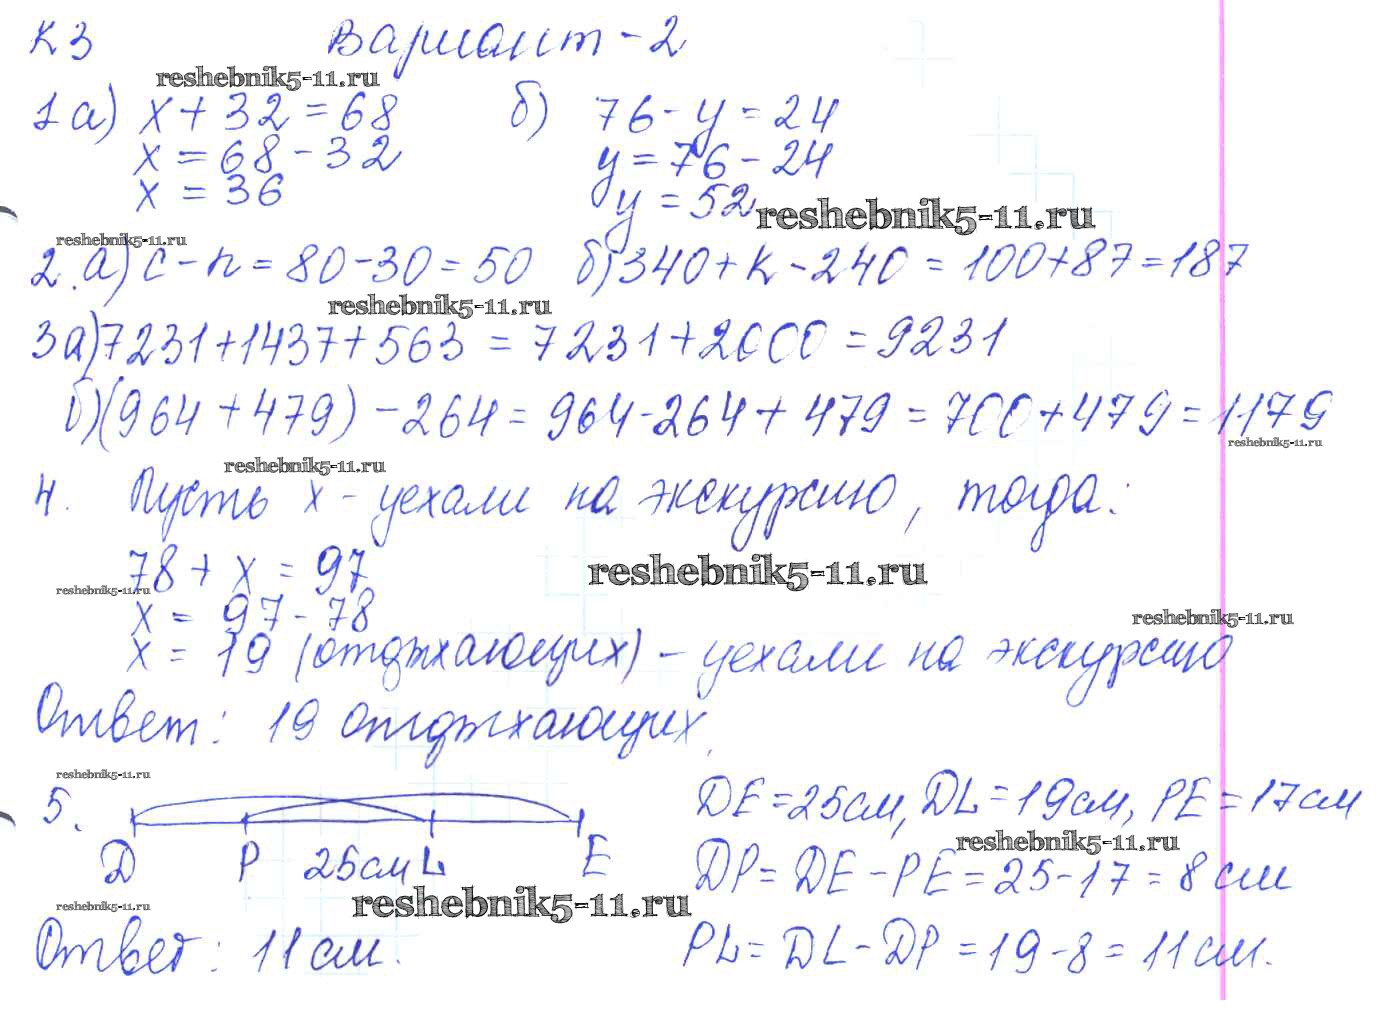 К 3 Вариант - 2
reshebnik5-11.ru
1 а) x + 32 = 68 б) 76 - y = 24
x = 68 - 32 y = 76 - 24
x = 36 y = 52
reshebnik5-11.ru
reshebnik5-11.ru
2. а) c - n = 80 - 30 = 50 б) 340 + k - 240 = 100 + 87 = 187
reshebnik5-11.ru
3 а) 7231 + 1437 + 563 = 7231 + 2000 = 9231
б) (964 + 479) - 264 = 964 - 264 + 479 = 700 + 479 = 1179
reshebnik5-11.ru
reshebnik5-11.ru
4. Пусть x - уехали на экскурсию, тогда:
78 + x = 97
reshebnik5-11.ru
reshebnik5-11.ru
x = 97 - 78
reshebnik5-11.ru
x = 19 (отдыхающих) - уехали на экскурсию
Ответ: 19 отдыхающих.
reshebnik5-11.ru
5. DE = 25см, DL = 19см, PE = 17см
reshebnik5-11.ru
D P 25см L E DP = DE - PE = 25 - 17 = 8 см
reshebnik5-11.ru
reshebnik5-11.ru
Ответ: 11 см. PL = DL - DP = 19 - 8 = 11 см.